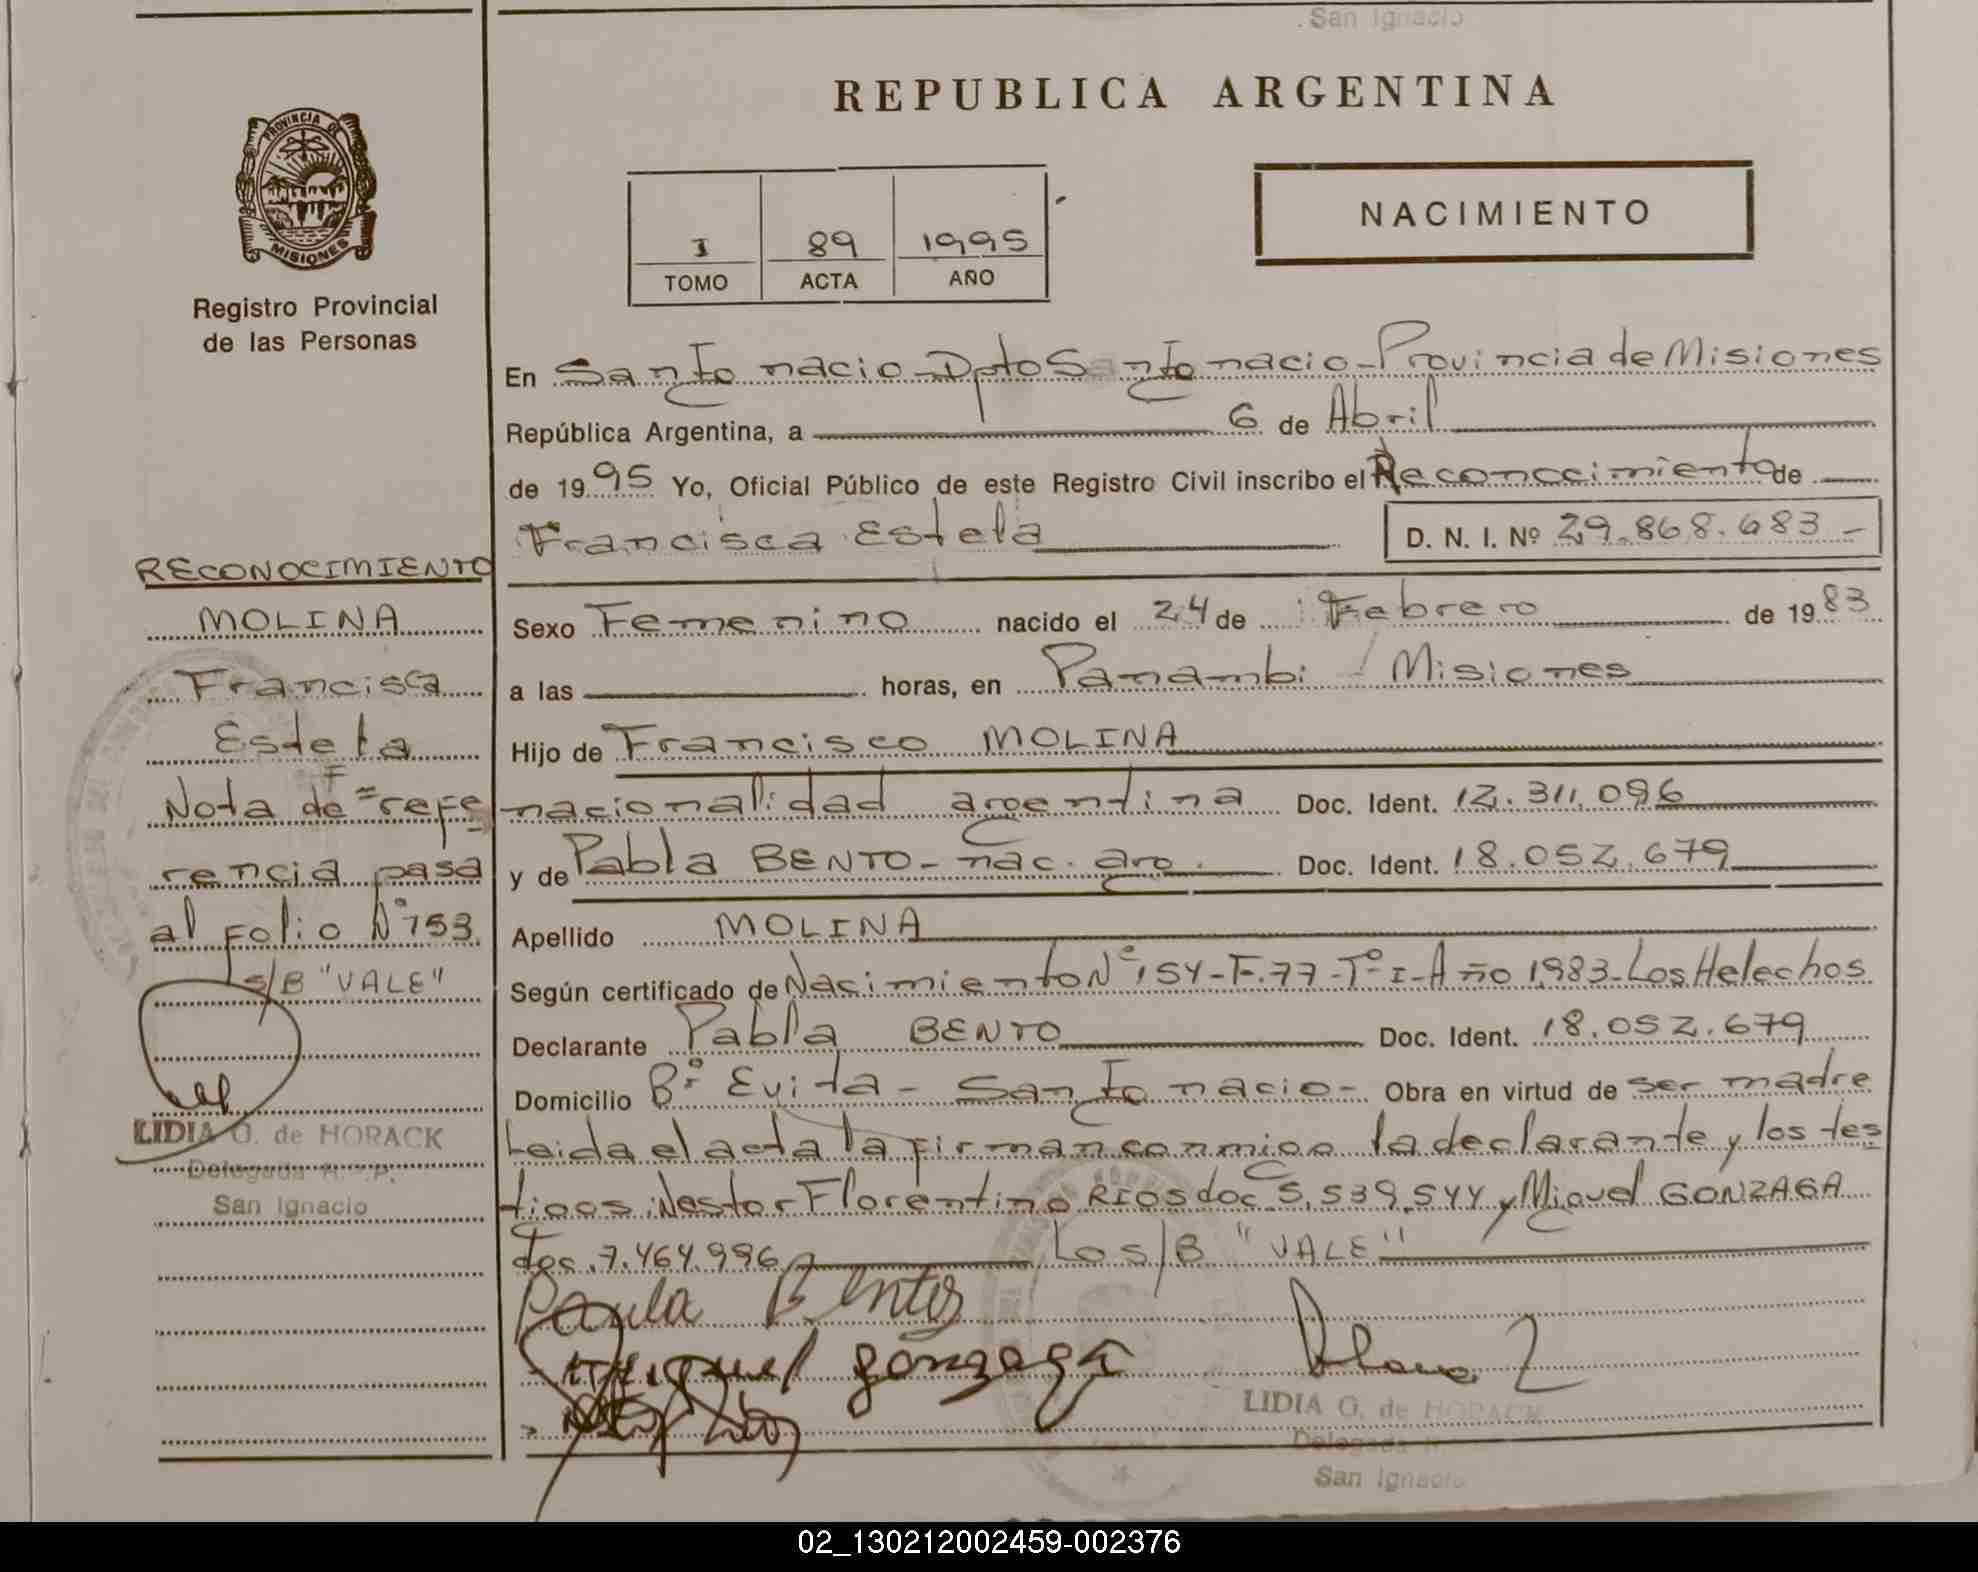 San Ignacio
REPUBLICA ARGENTINA
PROVINCIA DE
MISIONES
Registro Provincial
de las Personas
I 89 1995
TOMO ACTA AÑO
NACIMIENTO
En San Ignacio - Dpto San Ignacio - Provincia de Misiones
República Argentina, a 6 de Abril
de 1995 Yo, Oficial Público de este Registro Civil inscribo el Reconocimiento de
Francisca Estela D. N. I. Nº 29.868.683 -
Sexo Femenino nacido el 24 de Febrero de 1983
a las horas, en Panambi / Misiones
Hijo de Francisco MOLINA
nacionalidad argentina Doc. Ident. 12.311.096
y de Pabla BENTO - nac. arg. Doc. Ident. 18.052.679
Apellido MOLINA
Según certificado de Nacimiento Nº 154 - F. 77 - Tº I - Año 1983 - Los Helechos
Declarante Pabla BENTO Doc. Ident. 18.052.679
Domicilio Bº Evita - San Ignacio - Obra en virtud de ser madre
Leida el acta la firman conmigo la declarante y los tes
tigos: Nestor Florentino RIOS doc 5.539.544 y Miguel GONZAGA
doc. 7.464.996 Lo s/B "VALE"
RECONOCIMIENTO
MOLINA
Francisca
Estela
Nota de refe
rencia pasa
al folio Nº 153
s/B "VALE"
LIDIA O. de HORACK
Delegada R. P.
San Ignacio
Miguel gonzaga
LIDIA O. de HORACK
Delegada
San Ignacio
02_130212002459-002376